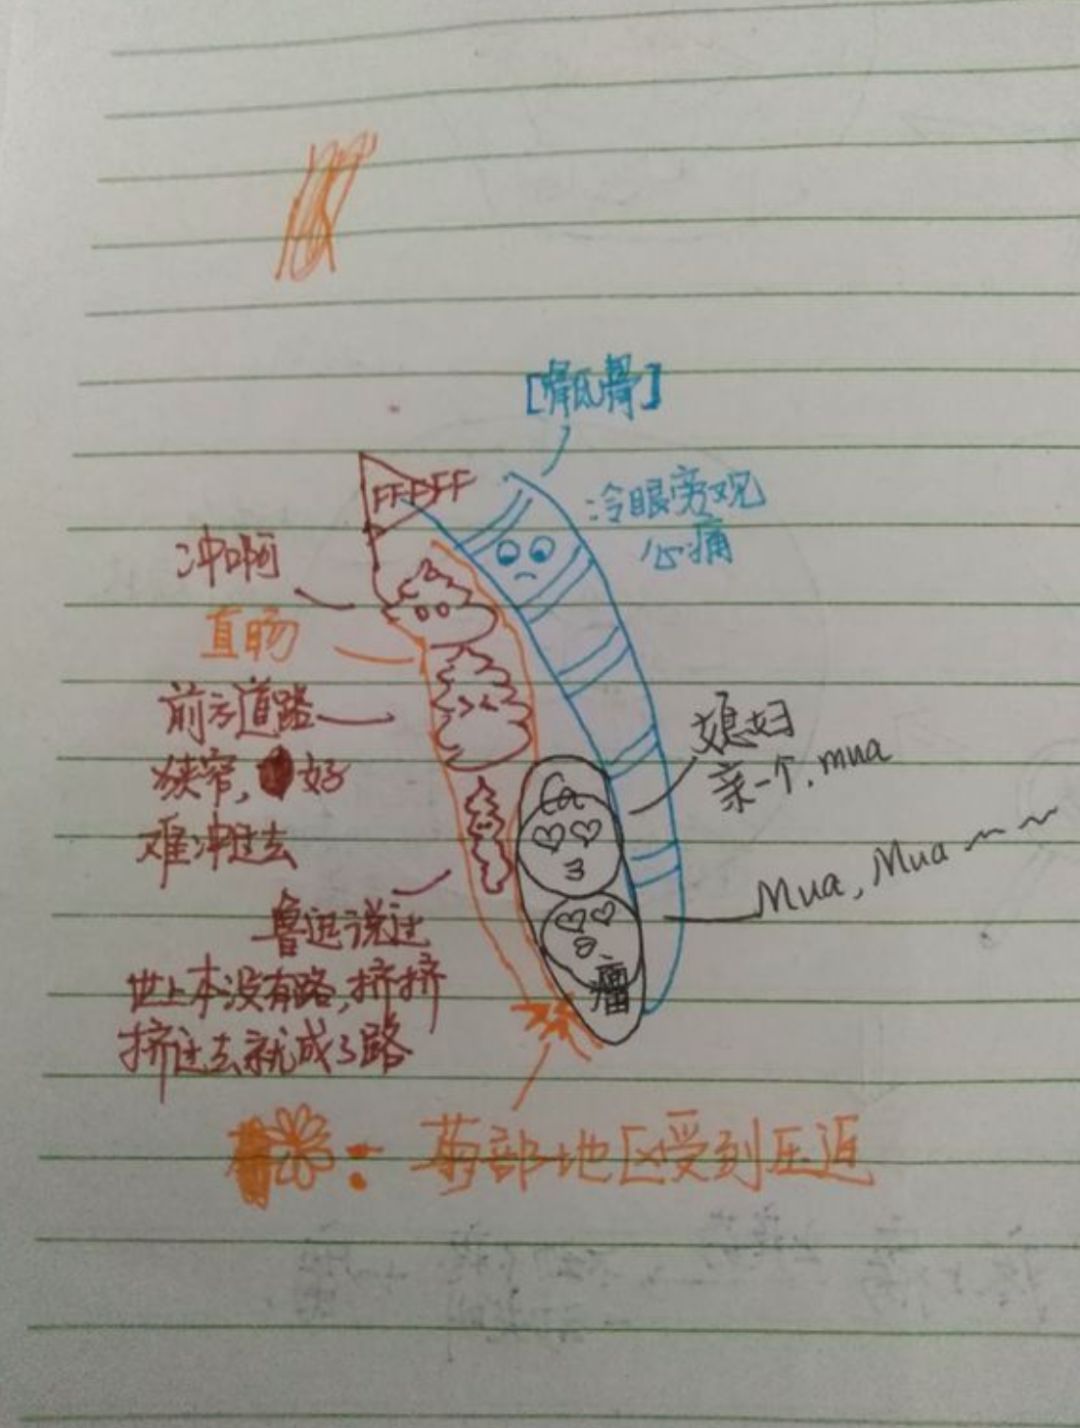 [骨氏骨]
FFFFF
冷眼旁观
心痛
冲啊
直肠
前方道路
狭窄,好
难冲过去
媳妇
亲一个,mua
Mua,Mua~~
鲁迅说过
世上本没有路,挤挤
挤过去就成了路
瘤
:菊部地区受到压迫